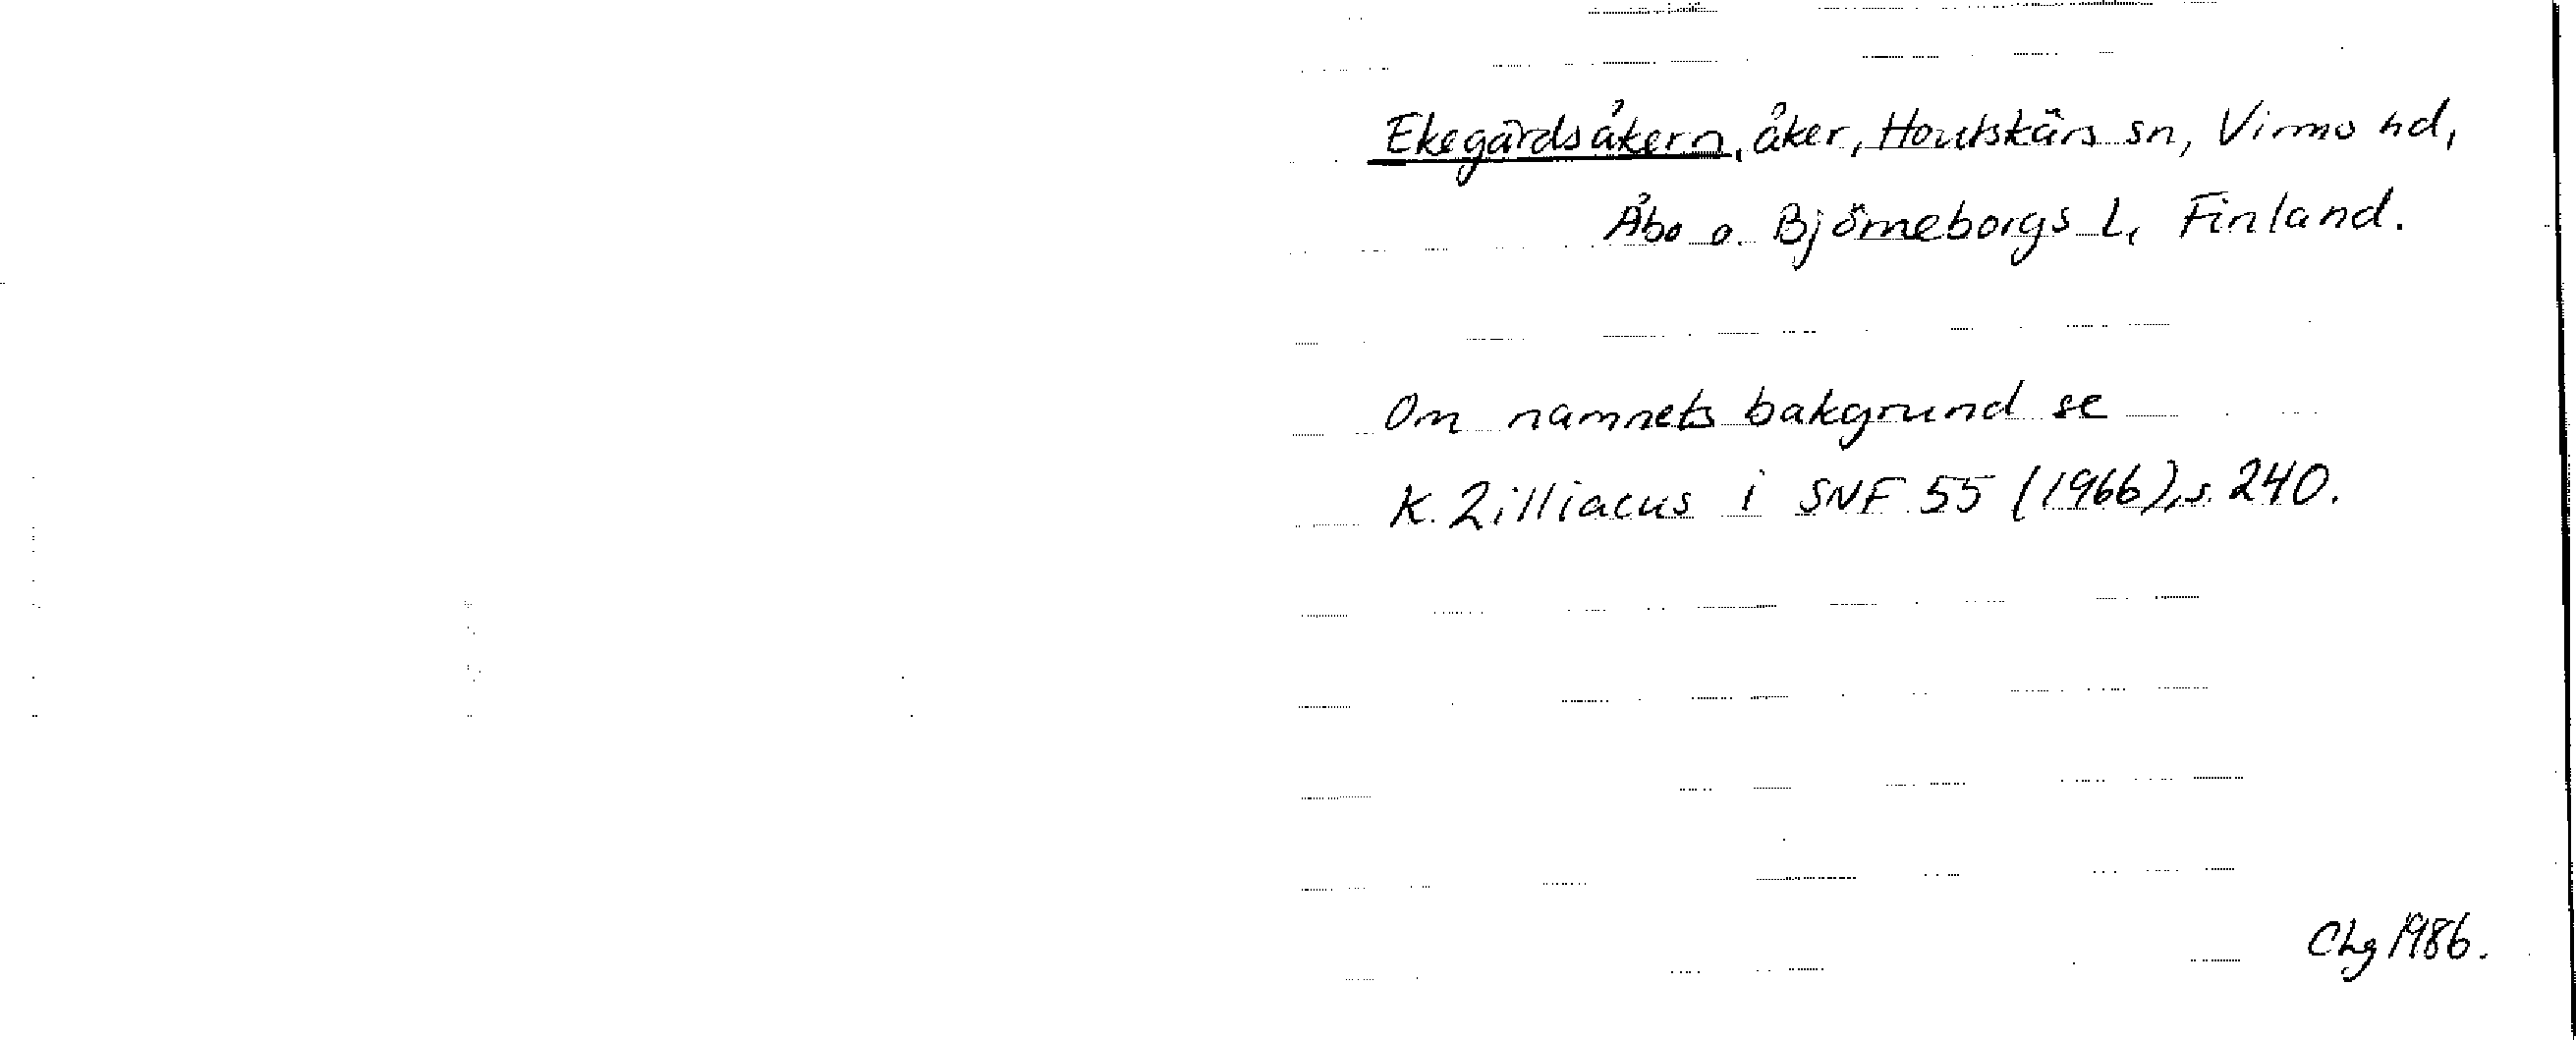 Ekegårdsåkern, åker, Houtskärs sn, Virmo hd,
Åbo o. Björneborgs l, Finland.
Om namnets bakgrund se
K. Zilliacus i SNF 55 (1966), s. 240.
Chg 1986.